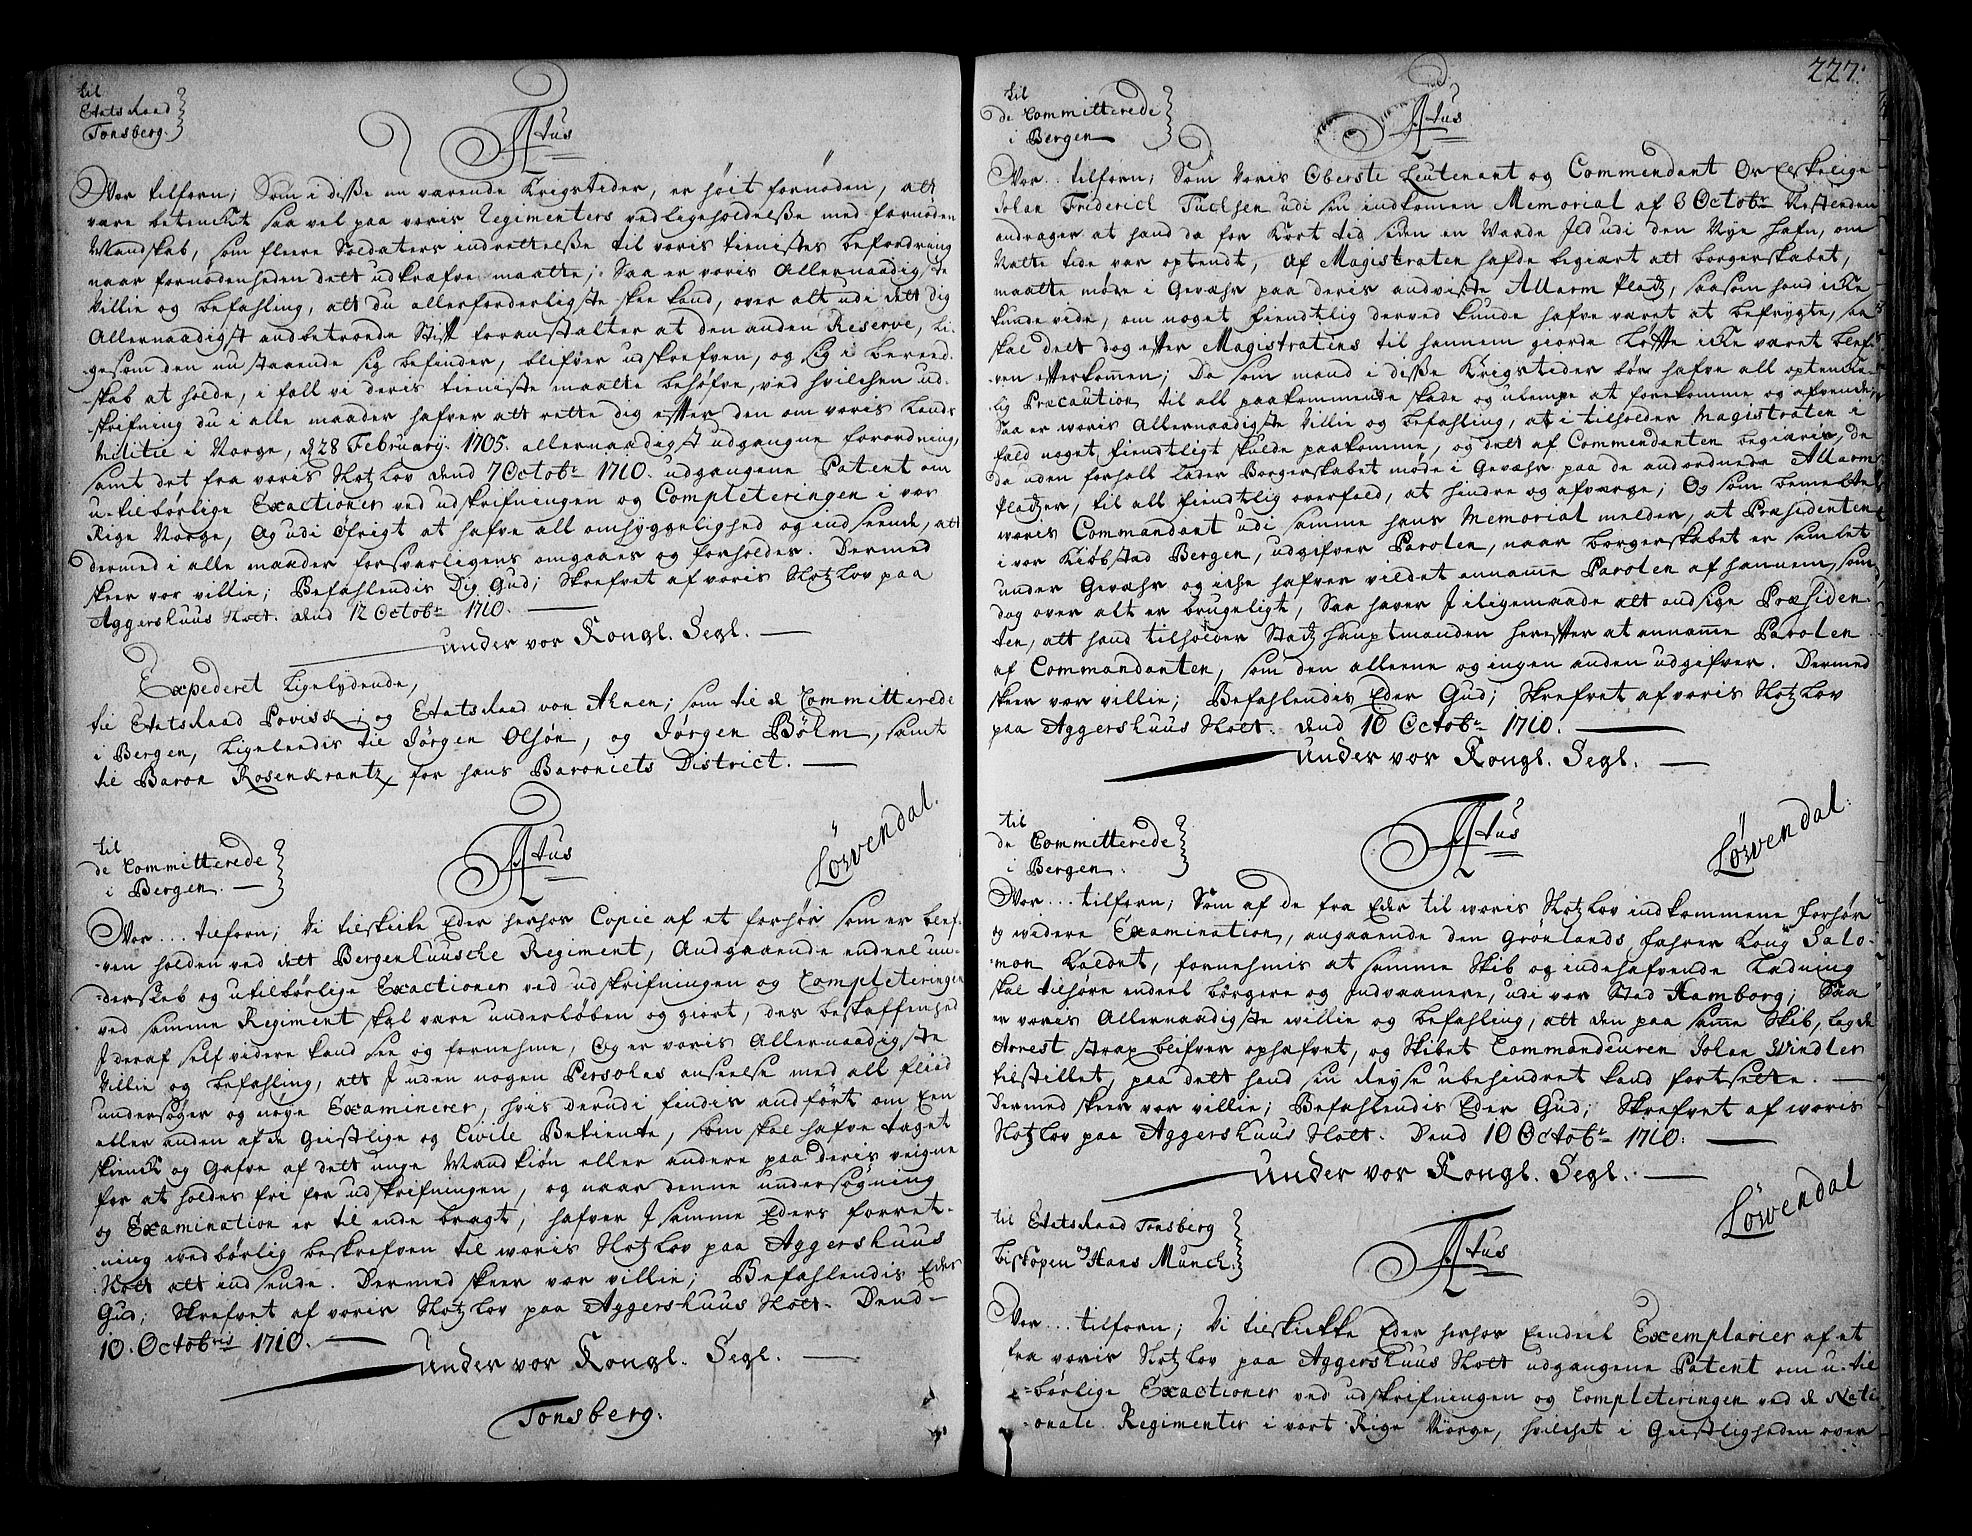 til
Etatsraad
Tonsberg.
Atus
Vor tilforn; Som i disse nu varende Krigstider, er høit fornøden, att
være betenckt saa vel paa voris Regimenters vedligeholdelße med fornøden
Mandskab, som fleere Soldaters indrettelße til voris tienistes befordring
naar fornødenheden dett udkræfve maatte; Saa er voris Allernaadigste
Villie og befahling, att du allerforderligste skee kand, over alt udi dett dig
Allernaadigst andbetroede Stift foranstalter at den anden Reserve, li-
gesom den nu staaende sig befinder, blifver udskrefven, og sig i bereed-
skab at holde, i fall vi deris tieniste maatte behøfve, ved hvilchen ud-
skrifning du i alle maader hafver att rette dig efter den om voris Lands
Militie i Norge, d 28 February. 1705. allernaadigst udgangne forordning,
samt det fra voris Slotz Lov dend 7 Octobr 1710. udgangene Patent om
u-tilbørlige Exactioner ved udskrifningen og Completeringen i vor
Rige Norge, Og udi øfrigt at hafve all omhyggelighed og indseende, att
dermed i alle maader forsvarligens omgaaes og forholdes. Dermed
skeer vor villie; Befahlendis Dig Gud; Skrefvet af voris Slotz Lov paa
Aggershuus Slott. dend 12 Octobr 1710.
under vor Kongl. Segl.
Expederet Ligelydende,
til Etatsraad Povisk; og Etatsraad von Ahnen; som til de Committerede
i Bergen, Ligeledis til Jørgen Olsøn, og Jørgen Bøhm, samt
til Baron Rosenkrantz for hans Baroniets District.
Løwendal.
til
de Committerede
i Bergen.
Atus
Vor... tilforn; Vi tilskicke Eder herhos Copie af et forhør som er blef-
ven holden ved dett Bergenhuusche Regiment, Andgaaende endeel un-
derskeb og utilbørlige Exactioner ved udskrifningen og Completeringen
ved samme Regiment skal være underløben og giort, des beskaffenhed
I deraf self videre kand see og fornehme, Og er voris Allernaadigste
Villie og befahling, att I uden nogen Persohns anseelse med all fliid
undersøger og nøye Examinerer, hvis derudi findis andført om Een
eller anden af de Geistlige og Civile Betiente, som skal hafve taget
skienck og Gafve af dett unge Mandkiøn eller andere paa deris veigne
for at holdes fri for udskrifningen, og naar denne undersøgning
og Examination er til ende bragt, hafver I samme Eders forret-
ning vedbørlig beskrefven til woris Slotz Lov paa Aggershuus
Slott att indsende. Dermed skeer vor villie; Befahlendis Eder
Gud; Skrefvet af voris Slotz Lov paa Aggershuus Slott. Dend
10. Octobris 1710.
Under vor Kongl. Segl.
Tonsberg.
227.
til
de Committerede
i Bergen
Atus
Vor.. tilforn; Som Voris Oberste Leutenant og Commendant Os Elskelige
Johan Frederich Tuchsen udi sin indkomen Memorial af 6 Octobr Næstenden
andrager at hand da for Kort tid siden en Vaade Ild udi den Nye Hafn, om
Natte tide var optendt, af Magistraten hafde begiært att borgerskabet,
maatte møde i Gevæhr paa deris andviste Allarm Platz, saasom hand icke
kunde vide, om noget fiendtlig derved kunde hafve været at befrygte, saa
skal dett dog efter Magistratens til hannem giorde Løfte icke været blef-
ven efterkommen; Da som mand i disse Krigstider bør hafve all optencke-
lig Præcaution til all paakommende skade og ulempe at forekomme og afvende;
Saa er woris Allernaadigste Villie og befahling, at i tilholder Magistraten i
fald noget fiendtligt skulde paakomme, og dett af Commendanten begiæris, de
da uden forhall lader Borgerskabet møde i Gevæhr paa de andordnede Allarm
Platzer, til all fiendtlig overfald, at hindre og afværge; Og som bemelte
woris Commandant udi samme hans Memorial melder, at Præsidenten
i vor Kiøbstad Bergen, udgifver Parolen, naar borgerskabet er samlet
under Gevæhr og icke hafver vildet annamme Parolen af hannem, som
dog over alt er brugeligt, Saa haver I iligemaade att andsige Præsiden-
ten, att hand tilholder Stadz Hauptmanden herefter at annamme Parolen
af Commandanten, som den alleene og ingen anden udgifver. Dermed
skeer vor villie; Befahlendis Eder Gud; Skrefvet af voris Slotz Lov
paa Aggershuus Slott. dend 10 Octobr 1710.
Under vor Kongl. Segl.
Løwendal.
til
de Committerede
i Bergen.
Atus
Vor... tilforn; Som af de fra Eder til woris Slotz Lov indkommene forhør
og widere Examination, angaaende den Grønlands fahrer Kong Salo-
mon Kaldet, fornehmis at samme Skib og indehafvende Ladning
skal tilhøre endeel børgere og Indvaanere, udi vor Stad Hamborg; Saa
er voris Allernaadigste willie og befahling, att den paa samme Skib, lagde
Arrest strax blifver ophafvet, og Skibet Commandeuren Johan Windler
tilstillet, paa dett hand sin Reyse ubehindret kand fortsette.
Dermed skeer vor villie; Befahlendis Eder Gud; Skrefvet af woris
Slotz Lov paa Aggershuus Slott. Dend 10 Octobr 1710.
Under vor Kongl. Segl.
Løwendal
til Etatsraad Tonsberg
biskopen og Hans Munch.
Atus
Vor... tilforn; Vi tilskickke Eder herhos Eendeel Exemplarier af et
fra voris Slotz Lov paa Aggershuus Slott udgangene Patent om u-til
børlige Exactioner ved udskrifningen og Completeringen ved de Nati-
onale Regimenter i vort Rige Norge, hvilchet i Geistligheden over